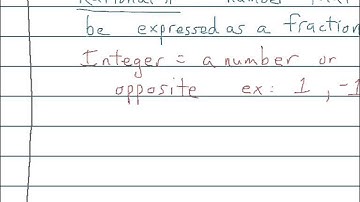 Rational # number that
be expressed as a fraction
Integer = a number or
opposite ex: 1, -1